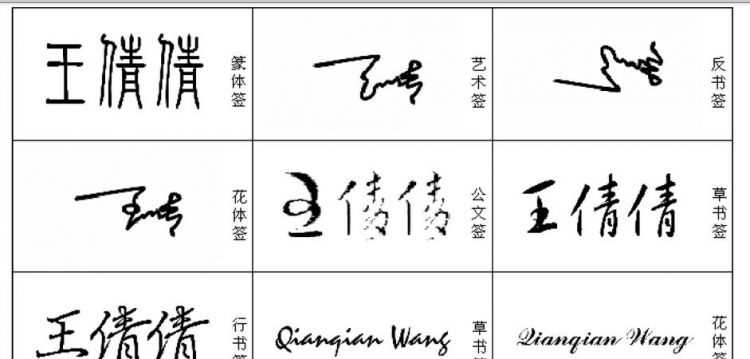 王倩倩
篆体签
艺术签
反书签
花体签
王倩倩
公文签
王倩倩
草书签
王倩倩
行书签
Qianqian Wang
草书签
Qianqian Wang
花体签